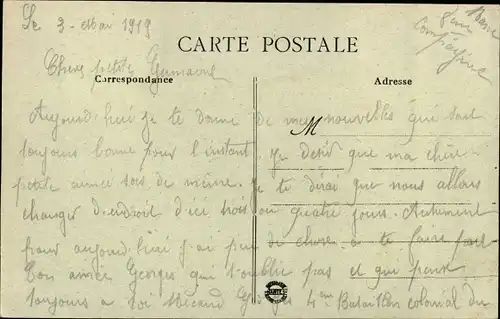 Le 3 - Mai 1919
CARTE POSTALE
Chère petite Germaine
Correspondance
Adresse
Aujourd'hui je te donne de mes nouvelles qui sont
M
toujours bonne pour l'instant. Je desir que ma chère
petite aimée sois de même. Je te dirai que nous allons
changer d'endroit d'ici trois ou quatre jours. Autrement
pour aujourd'hui j'ai peu de chose a te faire part
ton amie Georges qui t'oublie pas et qui pense
toujours a toi Georges 4em Bataillon colonial du